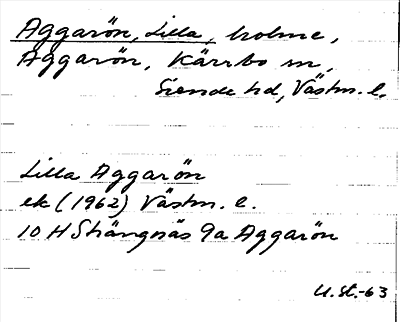 Aggarön, Lilla, holme,
Aggarön, Kärrbo sn,
Siende hd, Västm. l.
Lilla Aggarön
ek (1962) Västm. l.
10 H Strängnäs 9a Aggarön
U.St.-63